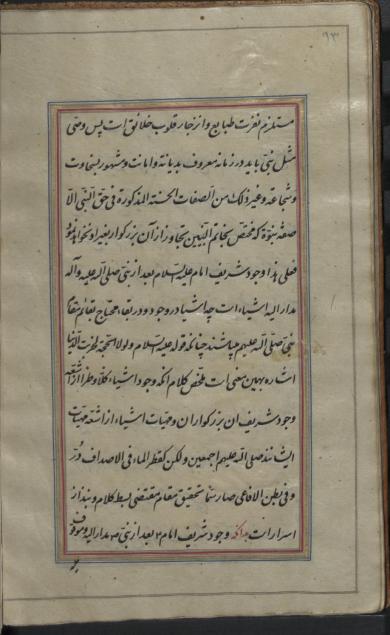 ٩٣
مستلزم نفرت طبایع و انزجار قلوب خلائق است پس وصی
مثل نبی باید در زمانه معروف بدیانة و امانت و مشهور بسخاوت
و شجاعة و غیر ذلک من الصفات الحسنة المذکورة فی حق النبی الا
صفة نبوة که مختص بخاتم النبیین تجاوز از آن بزرگوار بغیر او نخواهد
فعلی هذا وجود شریف امام علیه السلام بعد از نبی صلی الله علیه وآله
مدار الیه اشیاء است چه اشیاء در وجود و در بقاء محتاج بقائم مقام
نبی صلی الله علیهم میباشند چنانکه قوله علیه السلام ولولا الحجة لخربت الدنیا
اشاره بهمین معنی است ملخص کلام آنکه وجود اشیاء کلا و طرا از اشعه
وجود شریف ان بزرگواران و حیات اشیاء از اشعه حیات
ایشانند صلی الله علیهم اجمعین ولکن کقطر الماء فی الاصداف در
و فی بطن الافاعی صار سما تحقیق مقام مقتضی بسط کلام و
اسرار است بدانکه وجود شریف امام ۴ بعد از نبی ص مدار الیه و موقوف